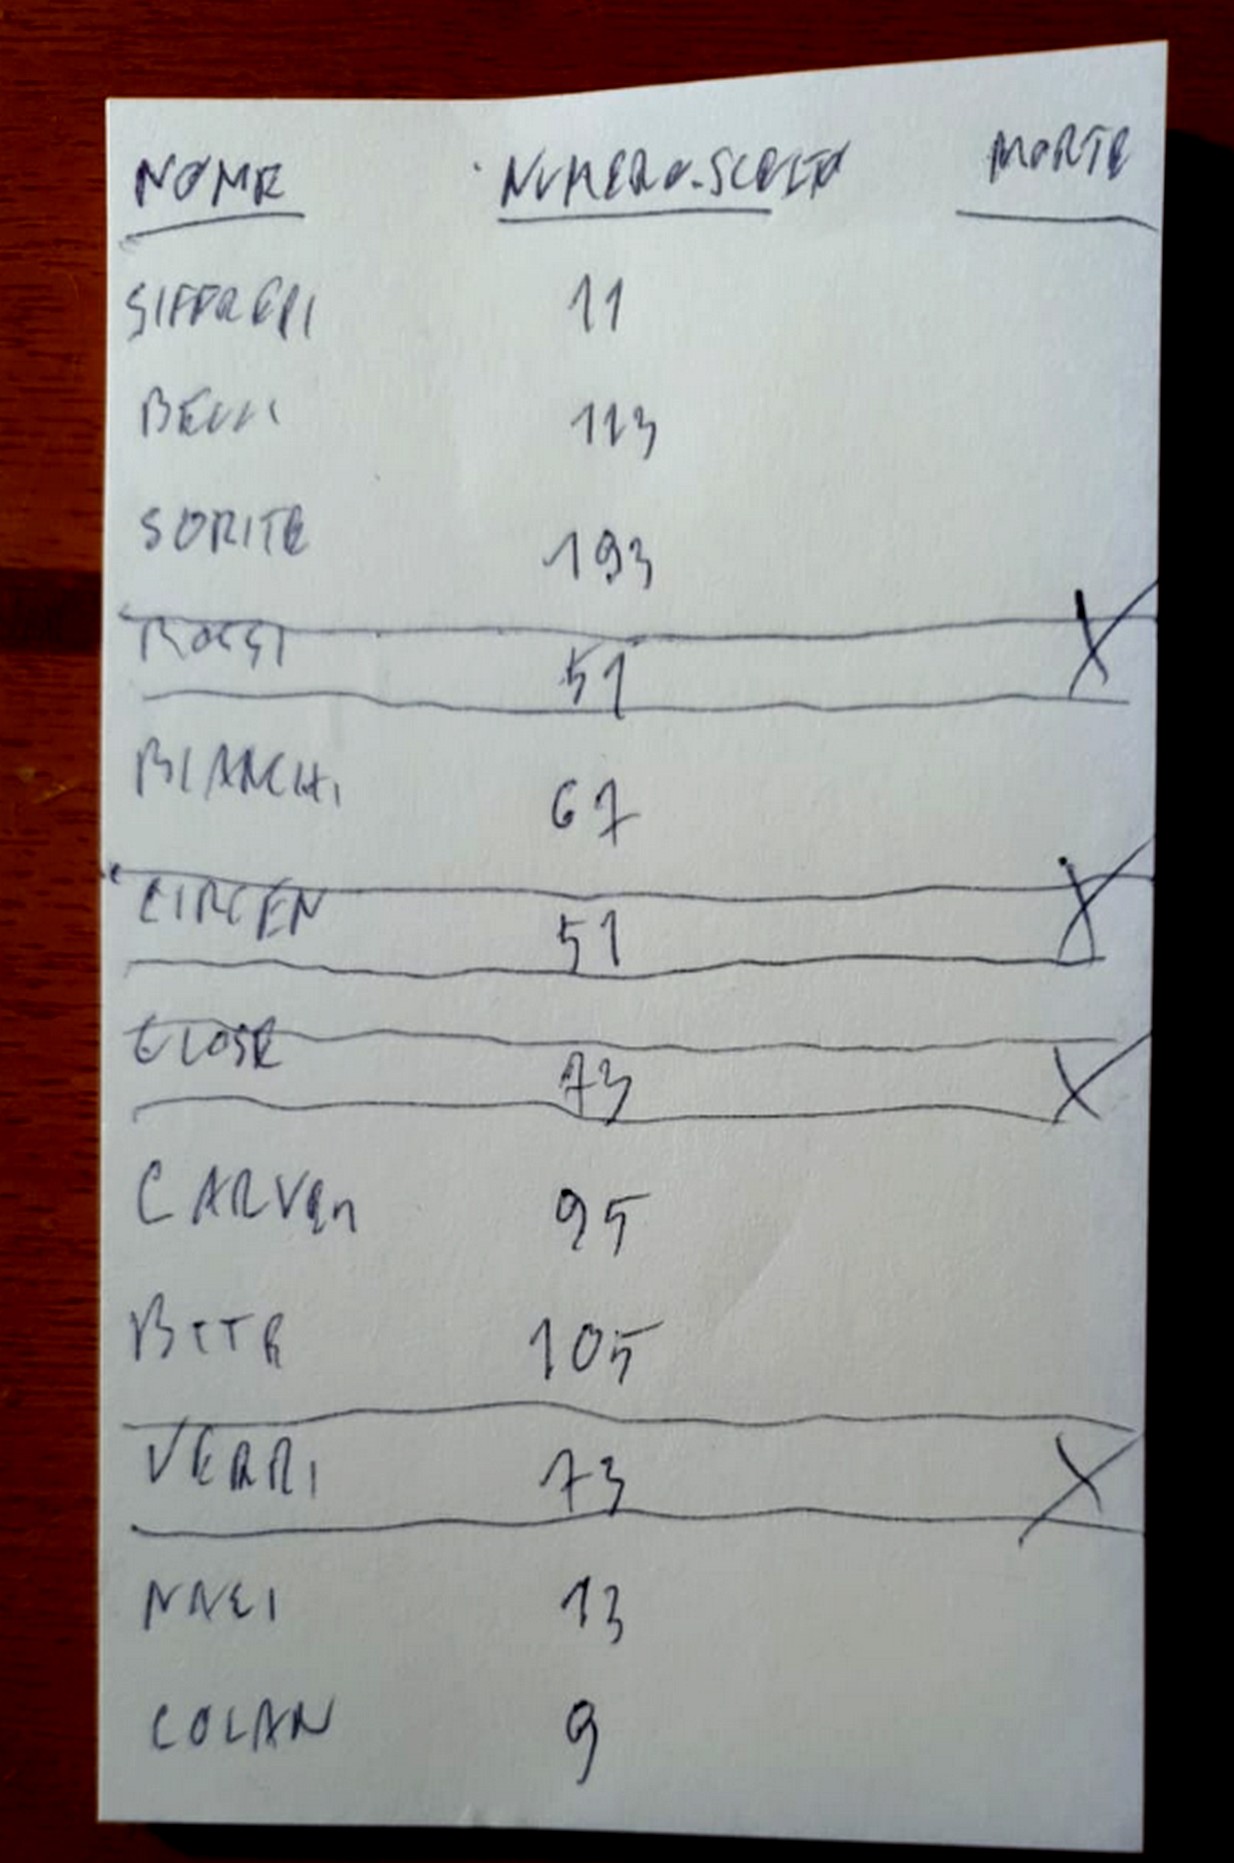 NOME NUMERO SCELTO MORTE
SIFFREDI 11
113
SORITE 193
ROSSI 51 X
BIANCHI 67
CIRCEN 51 X
CLOSE 73 X
CARVEN 95
105
VERRI 73 X
NNEI 13
COLAN 9